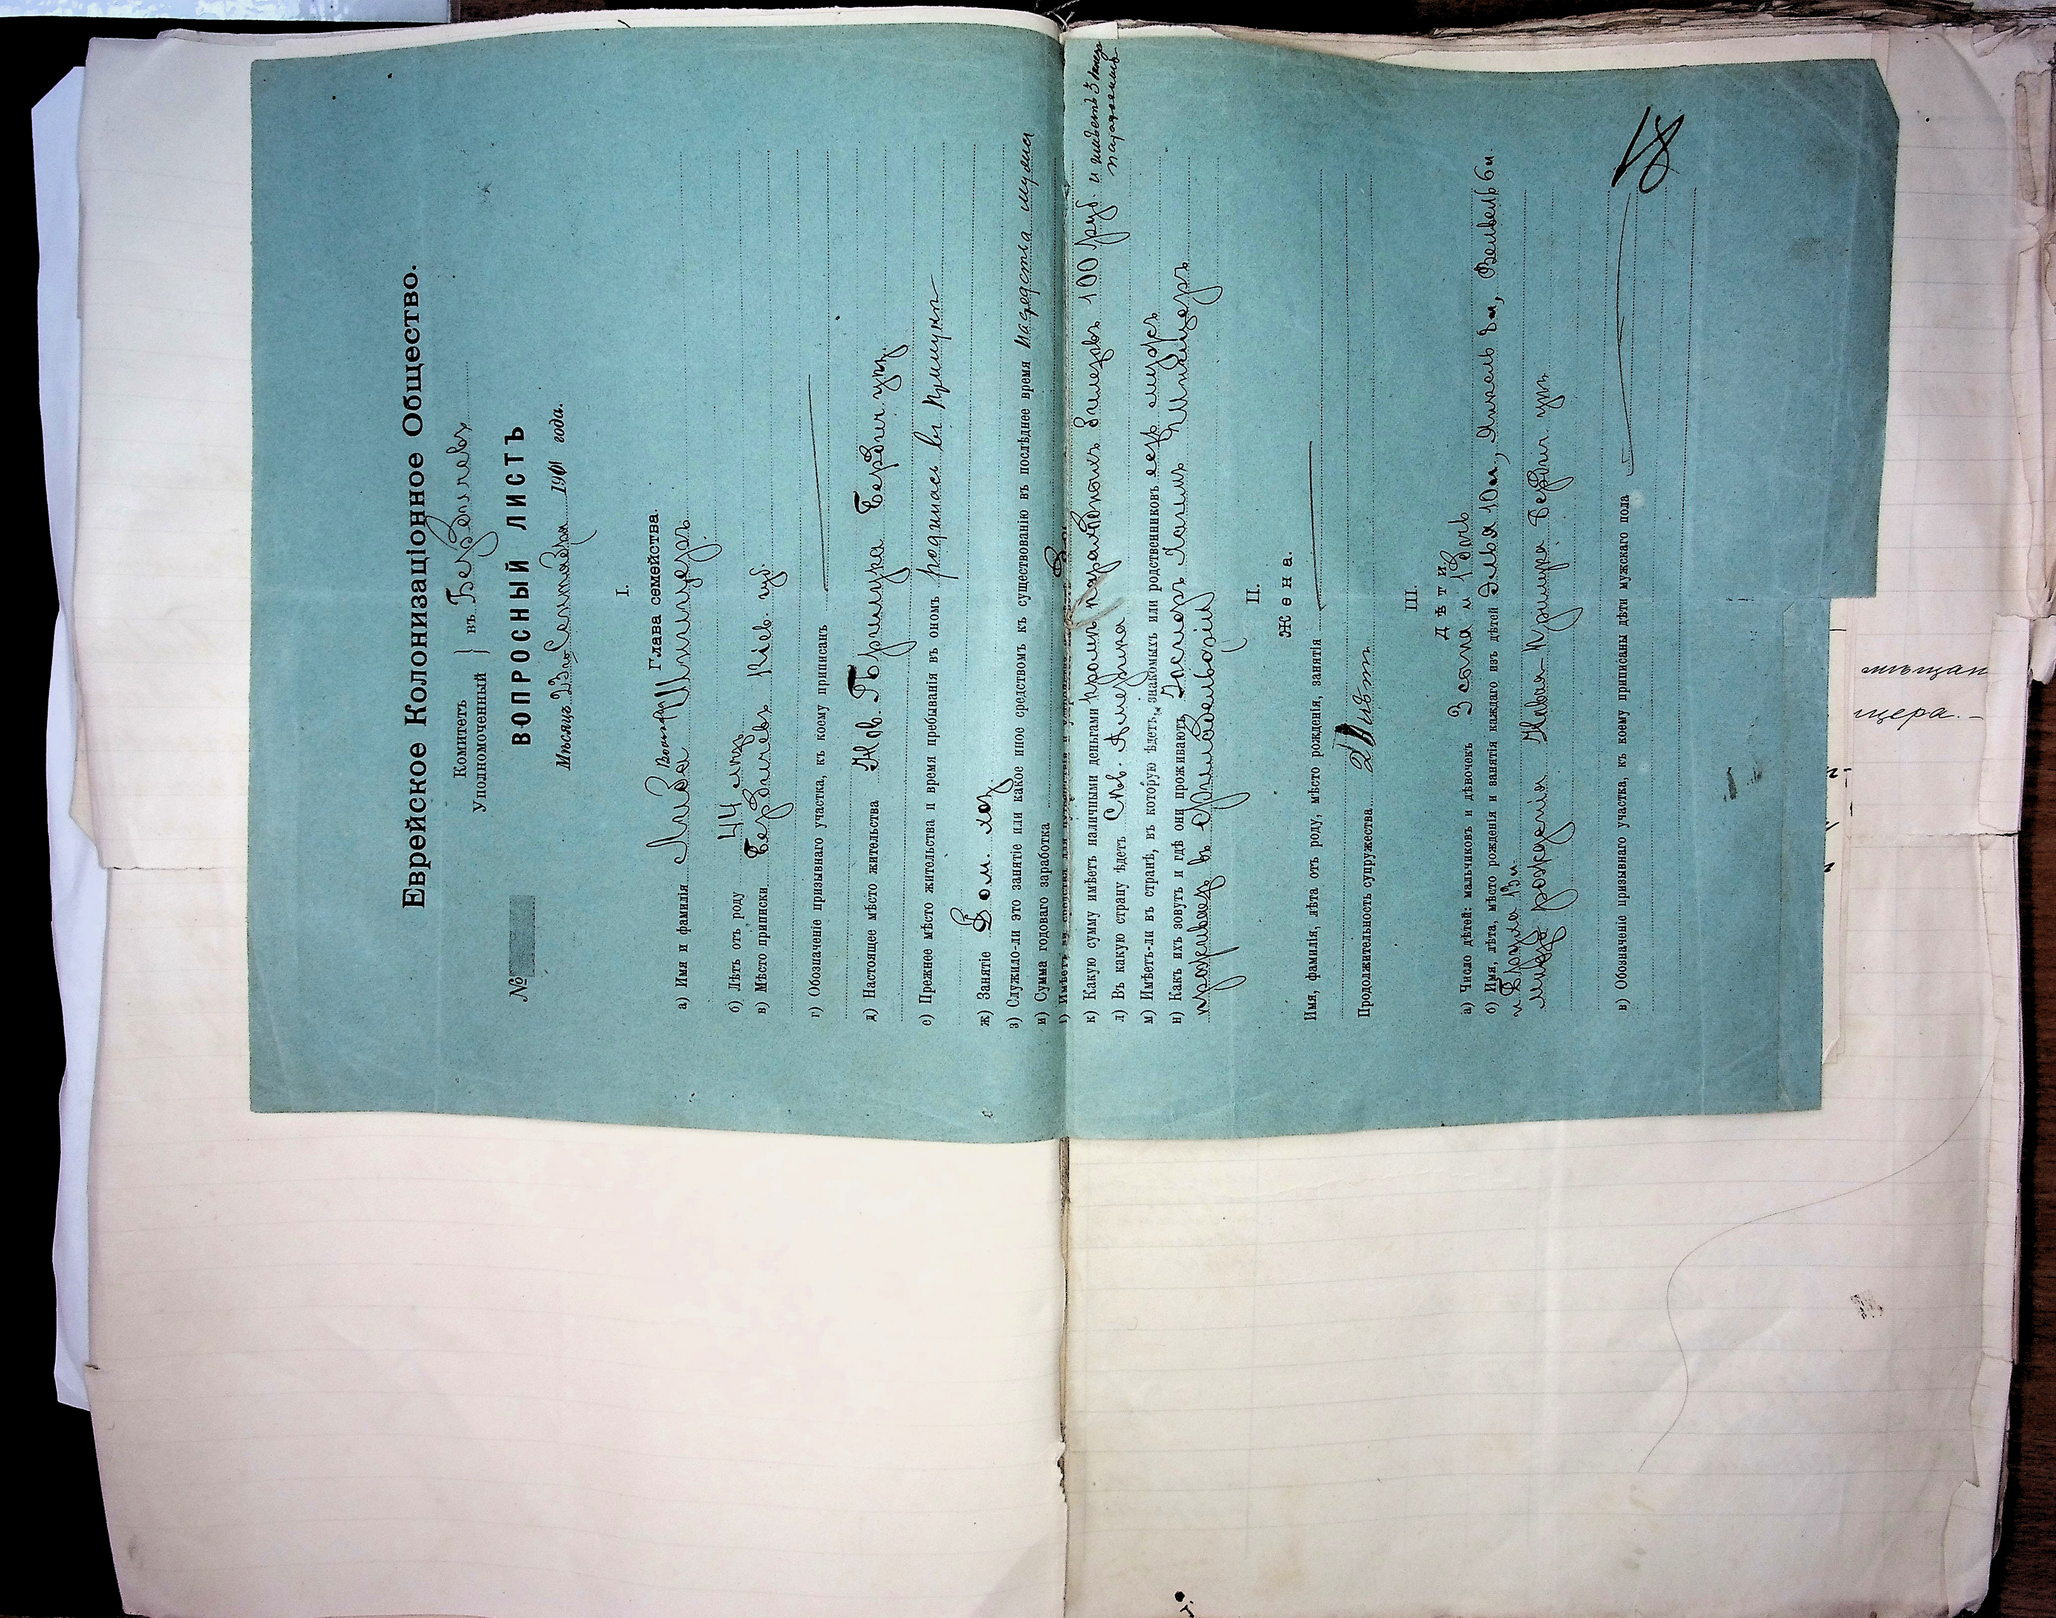 Еврейское Колонизаціонное Общество.
Комитетъ
Уполномоченный } въ Бердичевѣ
№ ВОПРОСНЫЙ ЛИСТЪ
Мѣсяцъ 23го Сентября 1901 года.
I.
Глава семейства.
а) Имя и фамилія Либа Шницеръ
б) Лѣтъ отъ роду 44 лѣтъ
в) Мѣсто приписки Бердичевъ Кіев. губ.
г) Обозначеніе призывнаго участка, къ коему приписанъ
д) Настоящее мѣсто жительства Нов. Прилука Бердич. уѣз.
е) Прежнее мѣсто жительства и время пребыванія въ ономъ родилась въ Прилукѣ
ж) Занятіе Дом. хоз.
з) Служило-ли это занятіе или какое иное средствомъ къ существованію въ послѣднее время средства мужа
и) Сумма годоваго заработка
к) Какую сумму имѣетъ наличными деньгами кромѣ пароходныхъ билетовъ 100 руб. и имѣетъ 3
л) Въ какую страну ѣдетъ Сѣв. Америка
м) Имѣетъ-ли въ странѣ, въ которую ѣдетъ, знакомыхъ или родственниковъ есть мужъ
н) Какъ ихъ зовутъ и гдѣ они проживаютъ Хаимъ Шницеръ
проживаетъ въ Филадельфіи
II.
Жена.
Имя, фамилія, лѣта отъ роду, мѣсто рожденія, занятія
Продолжительность супружества 21 лѣтъ
III.
Дѣти
а) Число дѣтей: мальчиковъ и дѣвочекъ 3 сына и 1 дочь
б) Имя, лѣта, мѣсто рожденія и занятія каждаго изъ дѣтей 10 л., 8 л., Вельвель 6 л.
и 13 л.
мѣсто рожденія Новая-Прилука Бердич. уѣз.
в) Обозначеніе призывнаго участка, къ коему приписаны дѣти мужскаго пола
18
мѣщан
цера.—